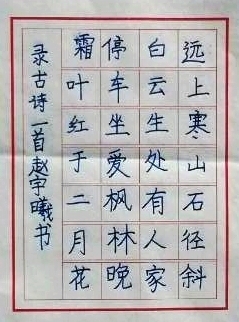 远上寒山石径斜
白云生处有人家
停车坐爱枫林晚
霜叶红于二月花
录古诗一首赵宇曦书